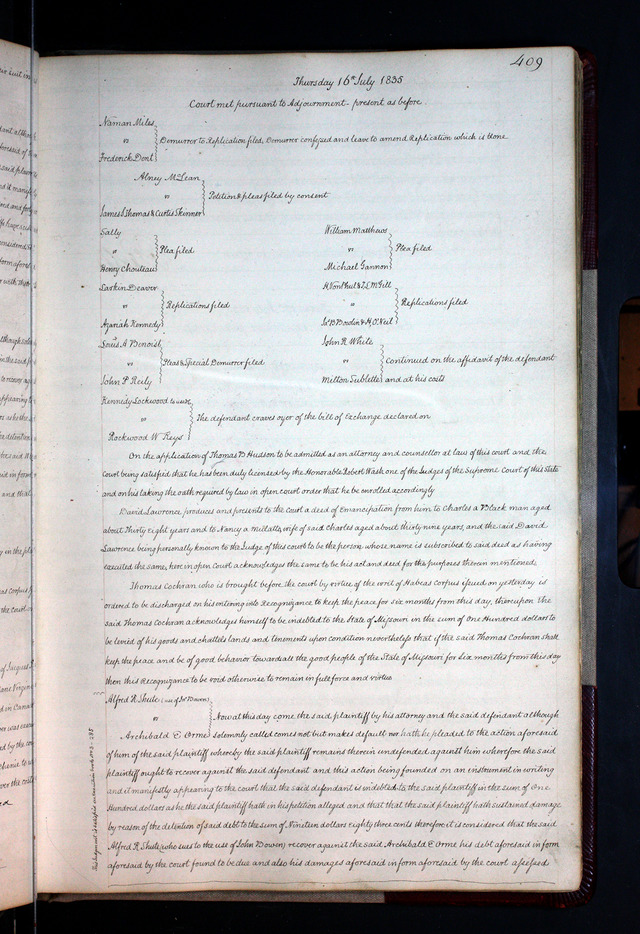 409
Thursday 16th July 1835
Court met pursuant to Adjournment - present as before
Naman Miles
vs
Demurrer to Replication filed, Demurrer confessed and leave to amend Replication which is done
Frederick Dent
Abney McLean
vs
Petition & pleas filed by consent
James S Thomas & Curtis Skinner
Sally
vs
Plea filed
Henry Chouteau
William Matthews
vs
Plea filed
Michael Gannon
Larkin Deaver
vs
Replications filed
Azariah Kennedy
vs
Replications filed
Louis A Benoist
vs
Pleas & Special Demurrer filed
John P Reily
John R White
vs
Continued on the affidavit of the defendant
Milton Sublette and at his costs
Kennedy Lockwood to use
vs
The defendant craves oyer of the bill of Exchange declared on
Rockwood W Keys
On the application of Thomas B Hudson to be admitted as an attorney and counsellor at law of this court and the
court being satisfied that he has been duly licensed by the Honorable Robert Wash one of the Judges of the Supreme Court of this State
and on his taking the oath required by law in open court order that he be enrolled accordingly
David Lawrence produces and presents to the Court a deed of Emancipation from him to Charles a Black man aged
about Thirty Eight years and to Nancy a mulatto, wife of said Charles aged about thirty nine years, and the said David
Lawrence being personally known to the Judge of this court to be the person whose name is subscribed to said deed as having
executed the same, here in open Court acknowledges the same to be his act and deed for the purposes therein mentioned.
Thomas Cochran who is brought before the court by virtue of the writ of Habeas Corpus issued on yesterday is
ordered to be discharged on his entering into Recognizance to keep the peace for six months from this day, thereupon the
said Thomas Cochran acknowledges himself to be indebted to the State of Missouri in the sum of One Hundred dollars to
be levied of his goods and chattels lands and tenements upon condition nevertheless that if the said Thomas Cochran shall
keep the peace and be of good behavior towards all the good people of the State of Missouri for Six months from this day
then this Recognizance to be void otherwise to remain in full force and virtue
Alfred R Shute (use of Jno Bowen)
vs
Now at this day come the said plaintiff by his attorney and the said defendant although
Archibald E Orme solemnly called comes not but makes default nor hath he pleaded to the action aforesaid
of him of the said plaintiff whereby the said plaintiff remains therein undefended against him wherefore the said
plaintiff ought to recover against the said defendant and this action being founded on an instrument in writing
and it manifestly appearing to the court that the said defendant is indebted to the said plaintiff in the sum of One
Hundred dollars as he the said plaintiff hath in his petition alleged and that that the said plaintiff hath sustained damage
by reason of the detention of said debt to the sum of Nineteen dollars eighty three cents therefore it is considered that the said
Alfred R Shute (who sues to the use of John Bowen) recover against the said Archibald E Orme his debt aforesaid in form
aforesaid by the court found to be due and also his damages aforesaid in form aforesaid by the court assessed